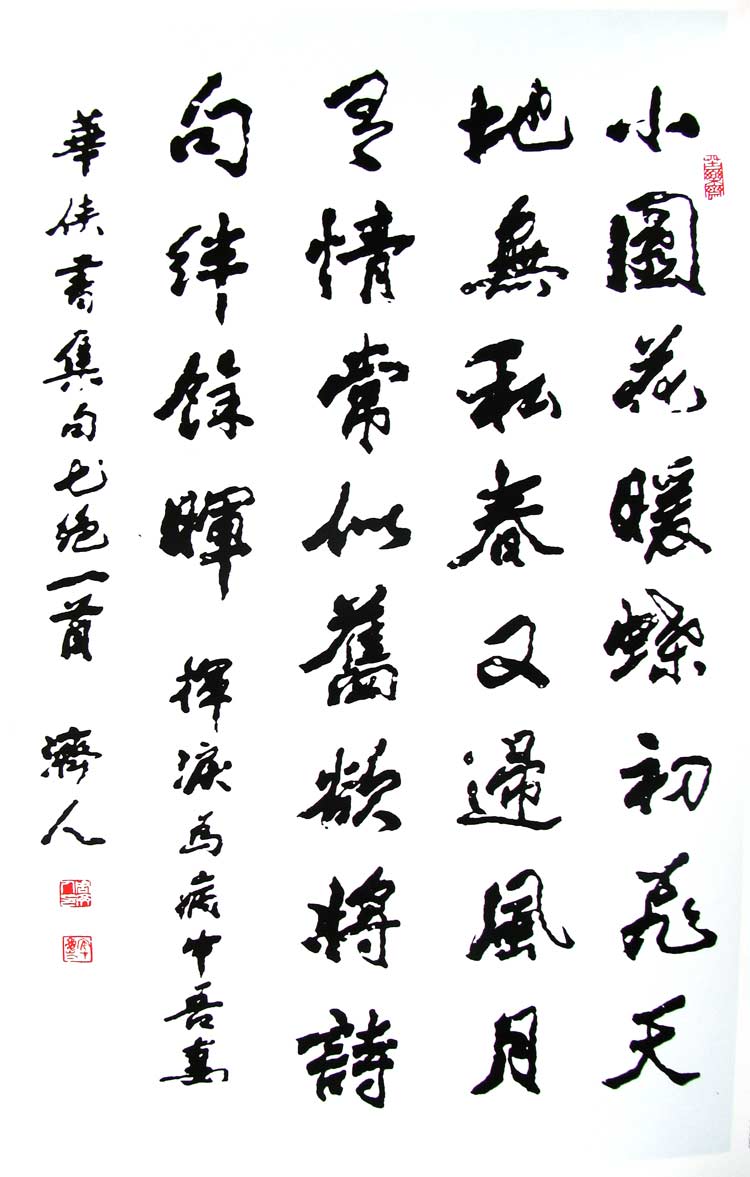 小園花暖蝶初飛天
地無私春又歸風月
有情常似舊欲將詩
句絆餘暉 揮淚為病中吾妻
華俠書集句七絕一首 濟人